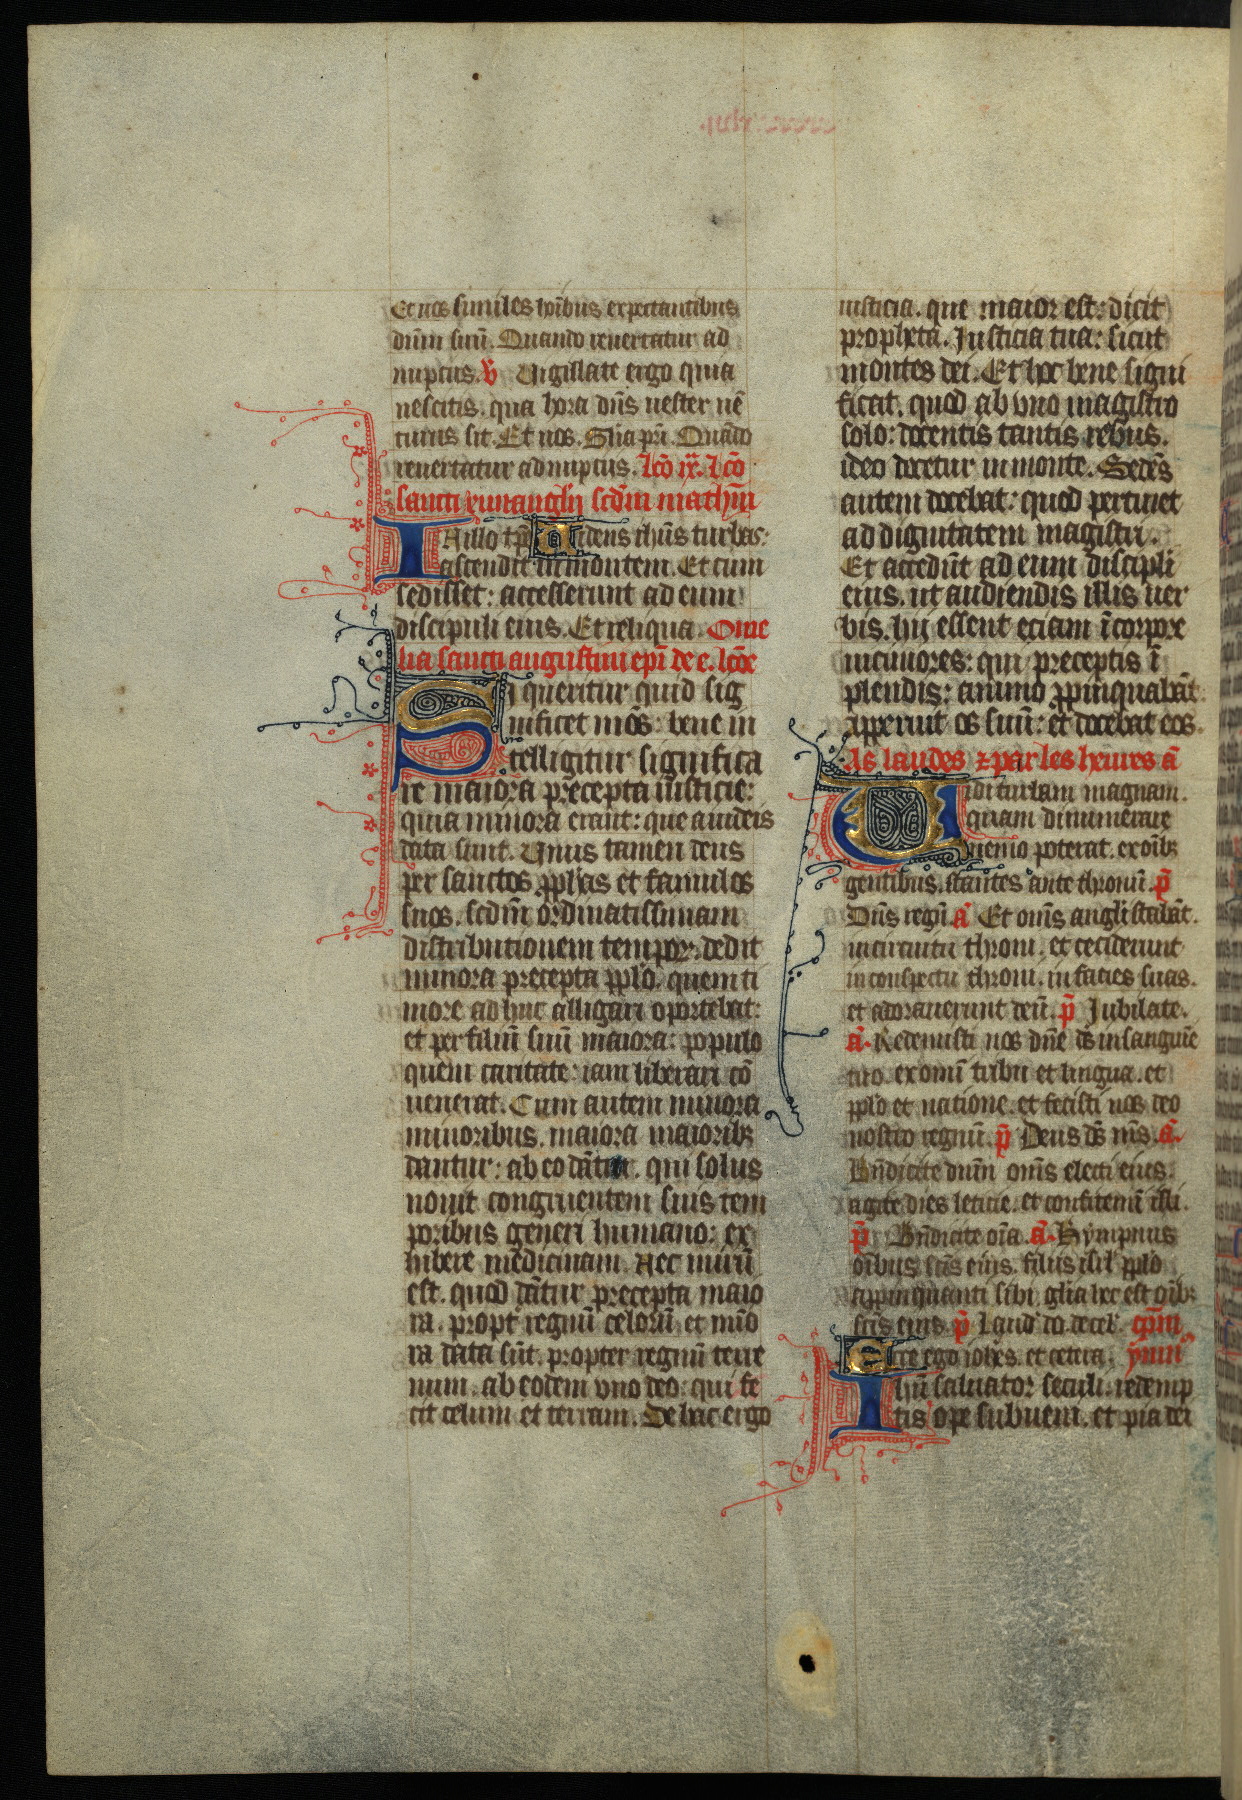 Et uos similes hoībus expectantibus
dūm suū. Quando reuertatur ad
nuptus. v̄ Uigillate ergo quia
nescitis. qua hora dn̄s uester uē
turus sit. Et uos. Gl̄ia pr̄i. Quādo
reuertatur ad nuptus. Lc̄o ix. Lc̄o
sancti euuangelij scd̄m math̄m
IN illo tp̄r Uidens ih̄us turbas:
ascendit in montem. Et cum
sedisset: accesserunt ad eum
discipuli eius. Et reliqua. Ome
lia sancti augustini ep̄i de e. lc̄oe
Si queritur quid sig
nificet mōs: bene in
telligitur significa
re maiora precepta iusticie:
quia minora erant: que iudeis
data sunt. Unus tamen deus
per sanctos ꝓph̄as et famulos
suos. scd̄m ordinatissimam
distributionem tempoꝝ: dedit
minora precepta pp̄lo. quem ti
more ad huc alligari oportebat:
et per filiū suū maiora: populo
quem caritate: iam liberari cō
uenerat. Cum autem minora
minoribus. maiora maioribꝫ
dantur: ab eo dātur. qui solus
nouit congruentem suis tem
poribus generi humano: ex
hibere medicinam. Nec mirū
est. quod dātur precepta maio
ra. propt regnū celoꝝ. et mīo
ra data sūt. propter regnū terre
num. ab eodem vno deo: qui fe
cit celum et terram. De hac ergo
iusticia. que maior est: dicit
propheta. Iusticia tua: sicut
montes dei. Et hoc bene signi
ficat. quod ab vno magistro
solo: docentis tantis rebus.
ideo docetur in monte. Sedēs
autem docebat: quod pertinet
ad dignitatem magistri.
Et accedūt ad eum discipli
eius. ut audiendis illis uer
bis. hij essent eciam ī corpore
uicinores: qui preceptis ī
plendis: animo ꝓpinquabāt.
apperuit os suū: et docebat eos.
As laudes ⁊ par les heures ā
Uidi turbam magnam.
quam dinumerare
nemo poterat. ex oībꝫ
gentibus. stantes ante thronū. p̄
Dn̄s regn̄. ā Et om̄s angli stabāt.
in circuitu throni. et ceciderunt
in conspectu throni. in facies suas.
et adorauerunt deū. p̄ Iubilate.
ā. Redemisti nos dn̄e ds̄ in sanguīe
tuo. ex omī tribu et lingua. et
pp̄lo et natione. et fecisti nos deo
nostro regnū. p̄ Deus ds̄ m̄s. ā.
Bn̄dicite dnm̄ om̄s electi eius.
agite dies leticie. et confitemī illi.
p̄ Bn̄dicite oīa. ā. Hympnus
oībus scīs eius. filiis isrl̄ pp̄lo
appinquanti sibi. gl̄ia hec est oībꝫ
scīs eius. p̄ Laud̄ do de cel̄. cp̄m
Ecce ego ioh̄es. et cetera. ymn̄
Ihū saluator seculi. redemp
tis ope subueni. et pia dei